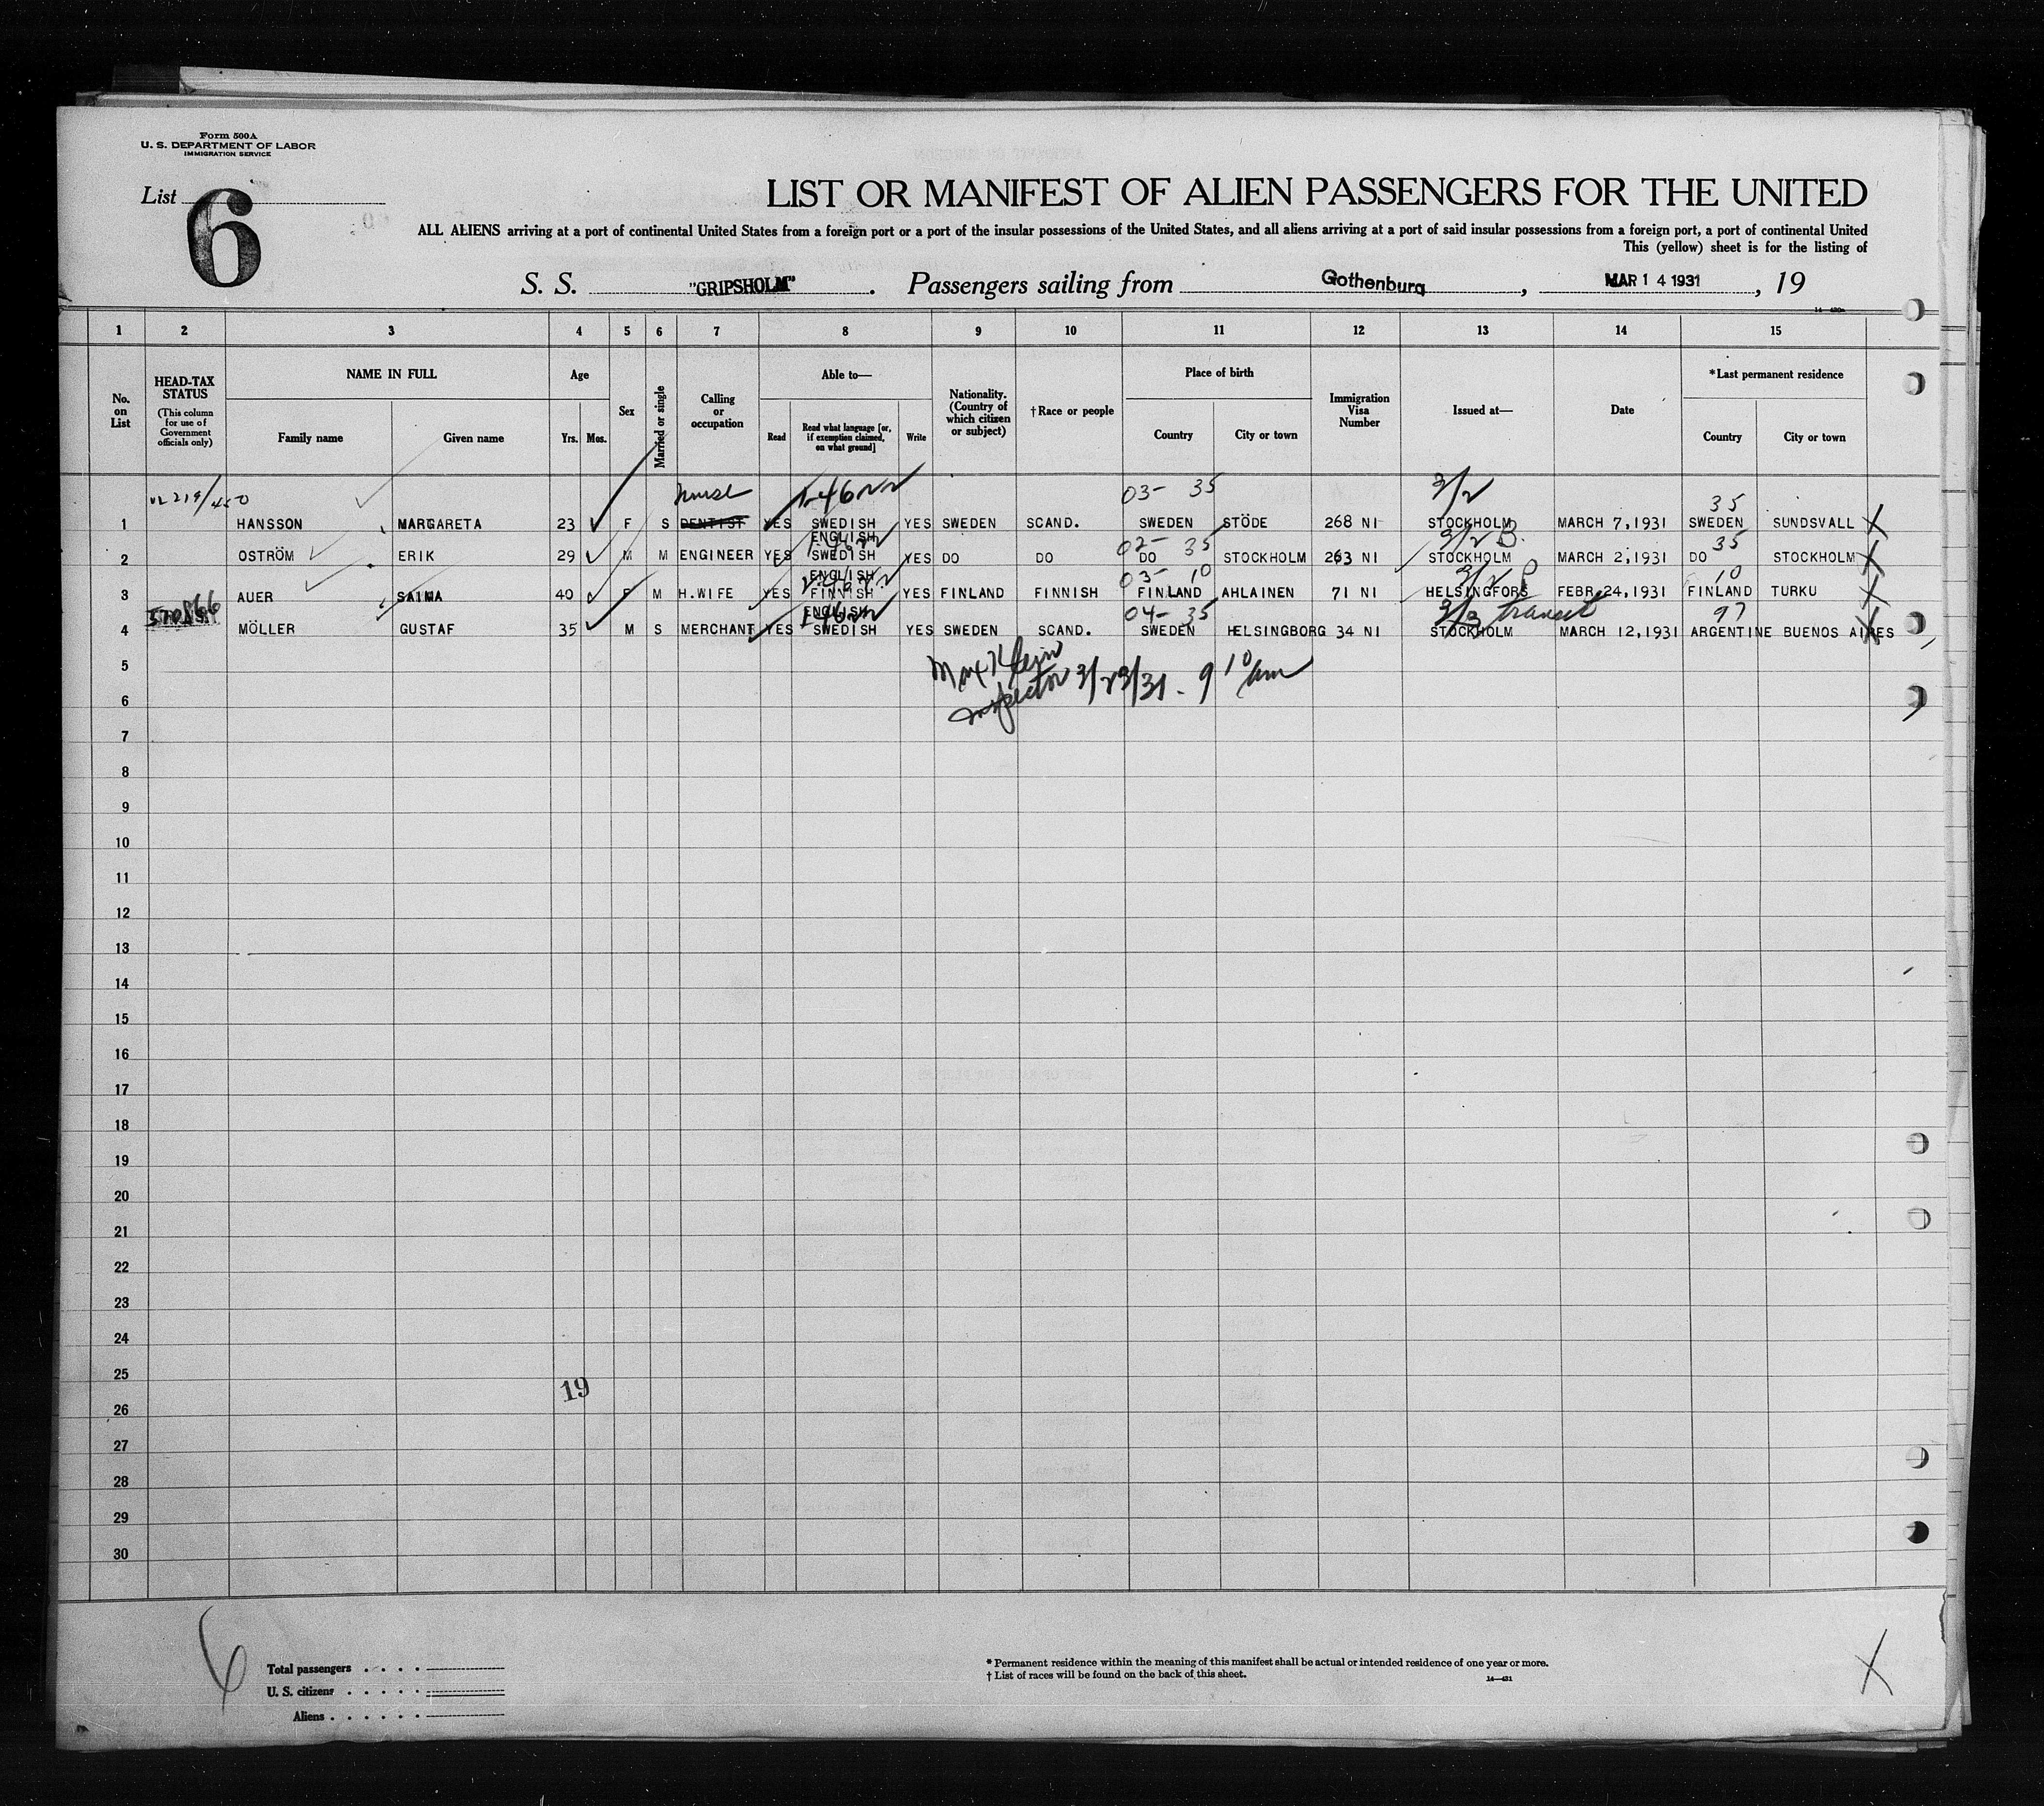 Form 500A
U. S. DEPARTMENT OF LABOR
IMMIGRATION SERVICE
List 6
LIST OR MANIFEST OF ALIEN PASSENGERS FOR THE UNITED
ALL ALIENS arriving at a port of continental United States from a foreign port or a port of the insular possessions of the United States, and all aliens arriving at a port of said insular possessions from a foreign port, a port of continental United
This (yellow) sheet is for the listing of
S. S. "GRIPSHOLM". Passengers sailing from Gothenburg, MAR 14 1931, 19
1 2 3 4 5 6 7 8 9 10 11 12 13 14 15
No. on List
HEAD-TAX STATUS
(This column for use of Government officials only)
NAME IN FULL
Family name
Given name
Age
Yrs. Mos.
Sex
Married or single
Calling or occupation
Able to—
Read
Read what language [or, if exemption claimed, on what ground]
Write
Nationality. (Country of which citizen or subject)
†Race or people
Place of birth
Country
City or town
Immigration Visa Number
Issued at—
Date
*Last permanent residence
Country
City or town
nurse 03- 35 3/2 35
1 HANSSON MARGARETA 23 F S DENTIST YES SWEDISH YES SWEDEN SCAND. SWEDEN STÖDE 268 NI STOCKHOLM MARCH 7,1931 SWEDEN SUNDSVALL X
ENGLISH 02- 35 3/2 B. 35
2 OSTRÖM ERIK 29 M M ENGINEER YES SWEDISH YES DO DO DO STOCKHOLM 263 NI STOCKHOLM MARCH 2,1931 DO STOCKHOLM X
ENGLISH 03- 10 3/2 10
3 AUER SAIMA 40 F M H.WIFE YES FINNISH YES FINLAND FINNISH FINLAND AHLAINEN 71 NI HELSINGFORS FEBR.24,1931 FINLAND TURKU X
ENGLISH 04- 35 3/3 transit 97
4 MÖLLER GUSTAF 35 M S MERCHANT YES SWEDISH YES SWEDEN SCAND. SWEDEN HELSINGBORG 34 NI STOCKHOLM MARCH 12,1931 ARGENTINE BUENOS AIRES X
5
Inspector 3/23/31 - 9 10/am
6
7
8
9
10
11
12
13
14
15
16
17
18
19
20
21
22
23
24
25
19
26
27
28
29
30
6
Total passengers
U. S. citizens
Aliens
* Permanent residence within the meaning of this manifest shall be actual or intended residence of one year or more.
† List of races will be found on the back of this sheet.
14—431
X